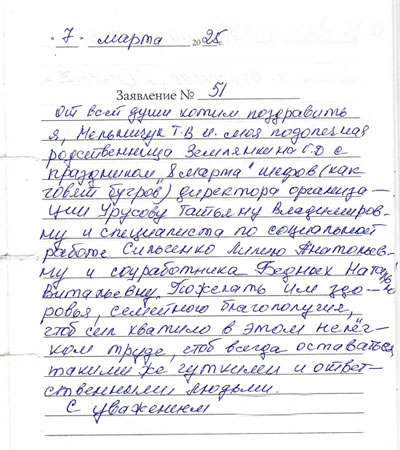 "7" марта 2025г.
Заявление № 51
От всей души хотим поздравить
я, Мельничук Т.В и моя подопечная
родственница Землянкина Г.Д с
праздником „8 марта" шефов (как
говят бугров) директора организа-
ции Урусову Татьяну Владимиров-
ну и специалиста по социальной
работе Сильсенко Лилию Анатольев-
ну и соцработника Бедных Наталью
Витальевну. Пожелать им здо-
ровья, семейного благополучия,
чтоб сил хватило в этом нелёг-
ком труде, чтоб всегда оставаться
такими же чуткими и ответ-
ственными людьми.
С уважением